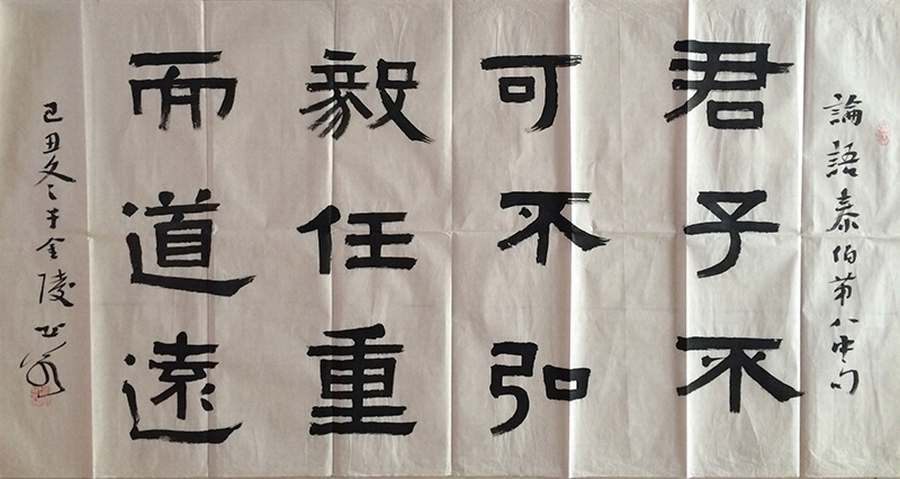 論語泰伯第八句
君子不
可不弘
毅任重
而道遠
己丑冬于金陵